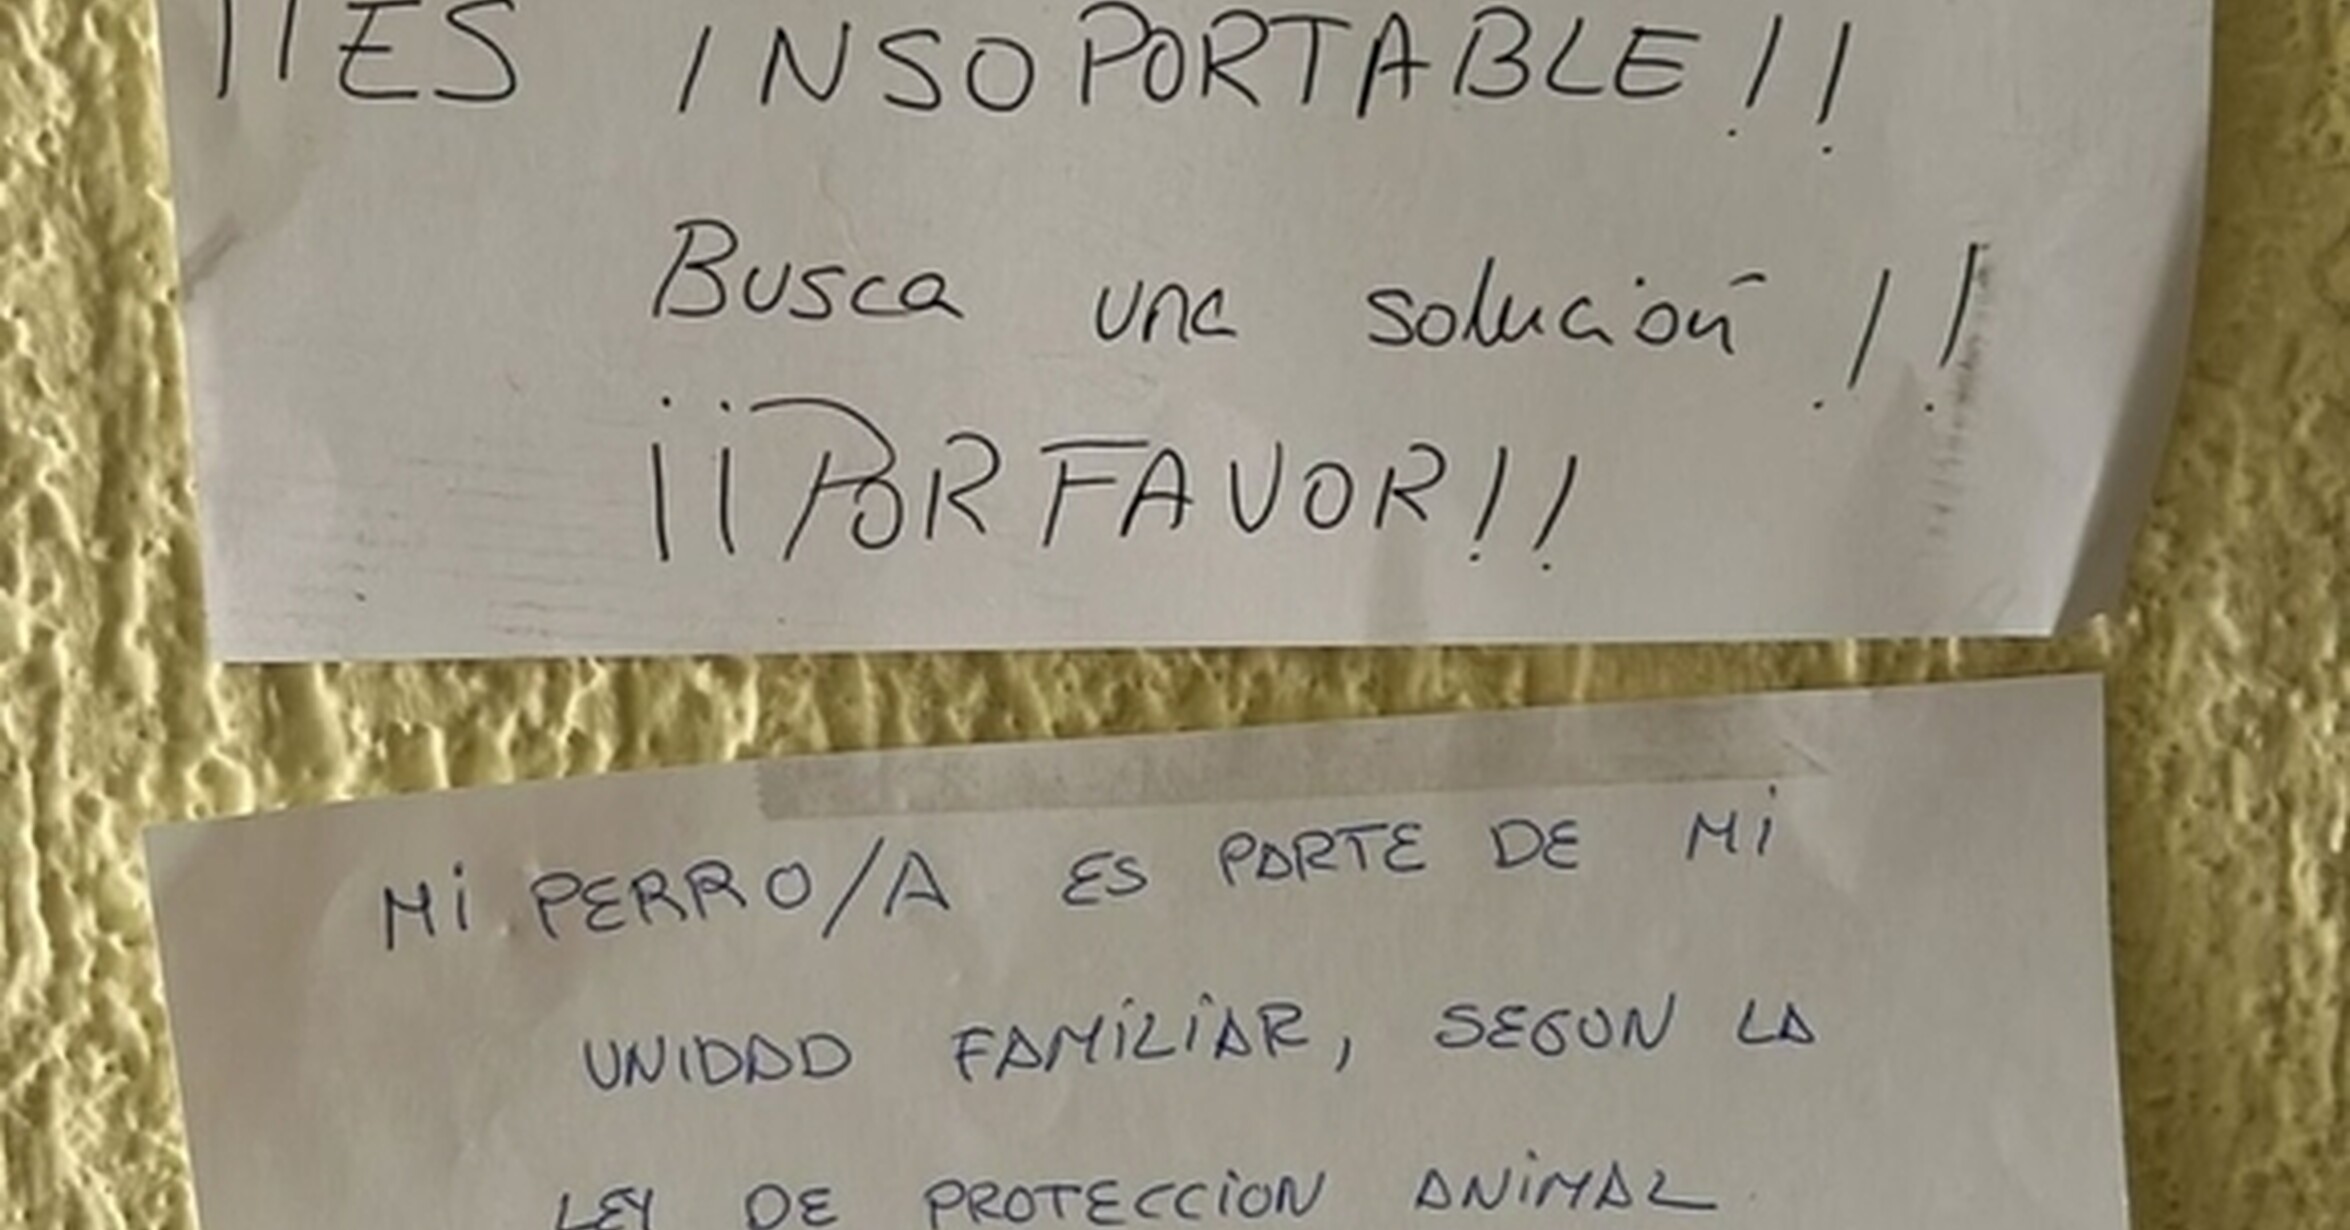 ¡¡ES INSOPORTABLE!!
Busca una solución!!
¡¡POR FAVOR!!
Mi PERRO/A ES PARTE DE Mi
UNIDAD FAMiLiAR, SEGUN LA
LEY DE PROTECCION ANiMAL